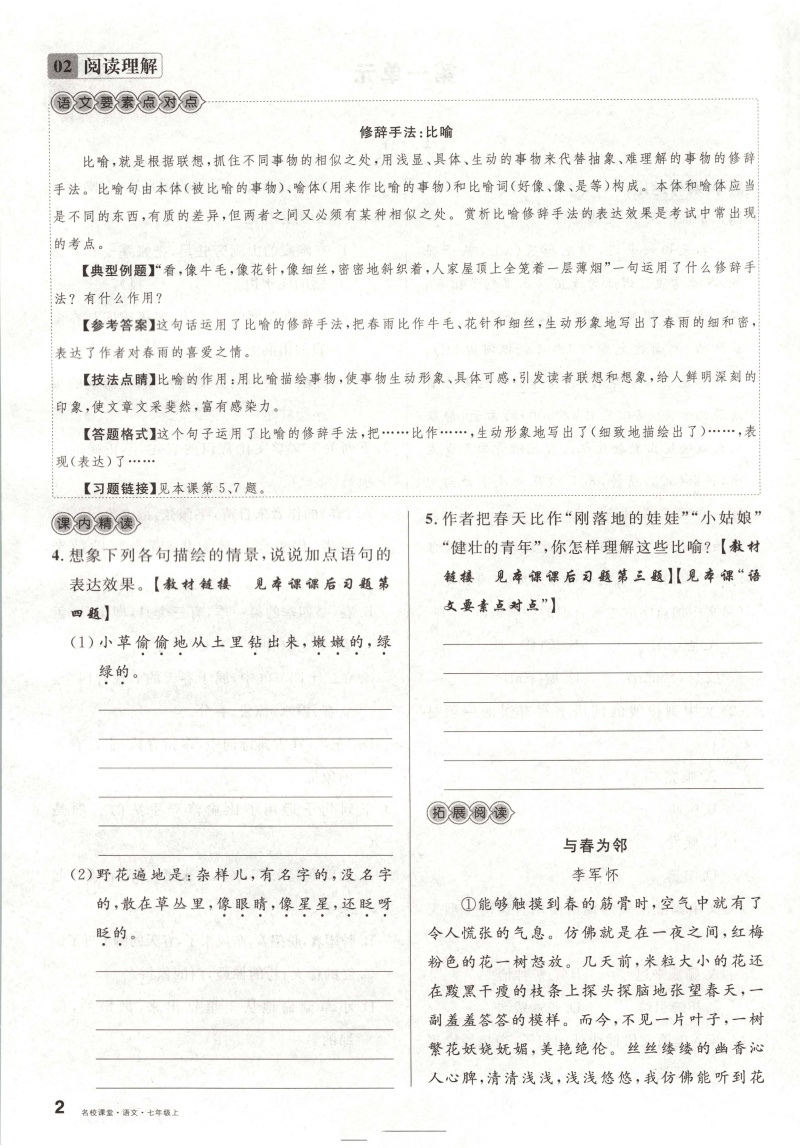 02 阅读理解
语文要素点对点
修辞手法:比喻
比喻,就是根据联想,抓住不同事物的相似之处,用浅显、具体、生动的事物来代替抽象、难理解的事物的修辞
手法。比喻句由本体(被比喻的事物)、喻体(用来作比喻的事物)和比喻词(好像、像、是等)构成。本体和喻体应当
是不同的东西,有质的差异,但两者之间又必须有某种相似之处。赏析比喻修辞手法的表达效果是考试中常出现
的考点。
【典型例题】“看,像牛毛,像花针,像细丝,密密地斜织着,人家屋顶上全笼着一层薄烟”一句运用了什么修辞手
法?有什么作用?
【参考答案】这句话运用了比喻的修辞手法,把春雨比作牛毛、花针和细丝,生动形象地写出了春雨的细和密,
表达了作者对春雨的喜爱之情。
【技法点睛】比喻的作用:用比喻描绘事物,使事物生动形象、具体可感,引发读者联想和想象,给人鲜明深刻的
印象,使文章文采斐然,富有感染力。
【答题格式】这个句子运用了比喻的修辞手法,把……比作……,生动形象地写出了(细致地描绘出了)……,表
现(表达)了……
【习题链接】见本课第5、7题。
课内精读
4. 想象下列各句描绘的情景,说说加点语句的
表达效果。【教材链接 见本课课后习题第
四题】
(1)小草偷偷地从土里钻出来,嫩嫩的,绿
绿的。
(2)野花遍地是:杂样儿,有名字的,没名字
的,散在草丛里,像眼睛,像星星,还眨呀
眨的。
5. 作者把春天比作“刚落地的娃娃”“小姑娘”
“健壮的青年”,你怎样理解这些比喻?【教材
链接 见本课课后习题第三题】【见本课“语
文要素点对点”】
拓展阅读
与春为邻
李军怀
①能够触摸到春的筋骨时,空气中就有了
令人慌张的气息。仿佛就是在一夜之间,红梅
粉色的花一树怒放。几天前,米粒大小的花还
在黢黑干瘦的枝条上探头探脑地张望春天,一
副羞羞答答的模样。而今,不见一片叶子,一树
繁花妖娆妩媚,美艳绝伦。丝丝缕缕的幽香沁
人心脾,清清浅浅,浅浅悠悠,我仿佛能听到花
2 名校课堂·语文·七年级上